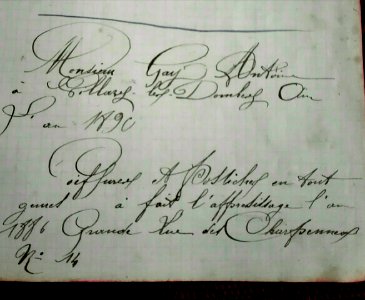 Monsieur Gay Antoine
à Villars les Dombes Ain
l'an 1890
Coiffures et Postiches en tout
genres à fait l'apprentissage l'an
1886 Grande Rue des Charpennes
No 14